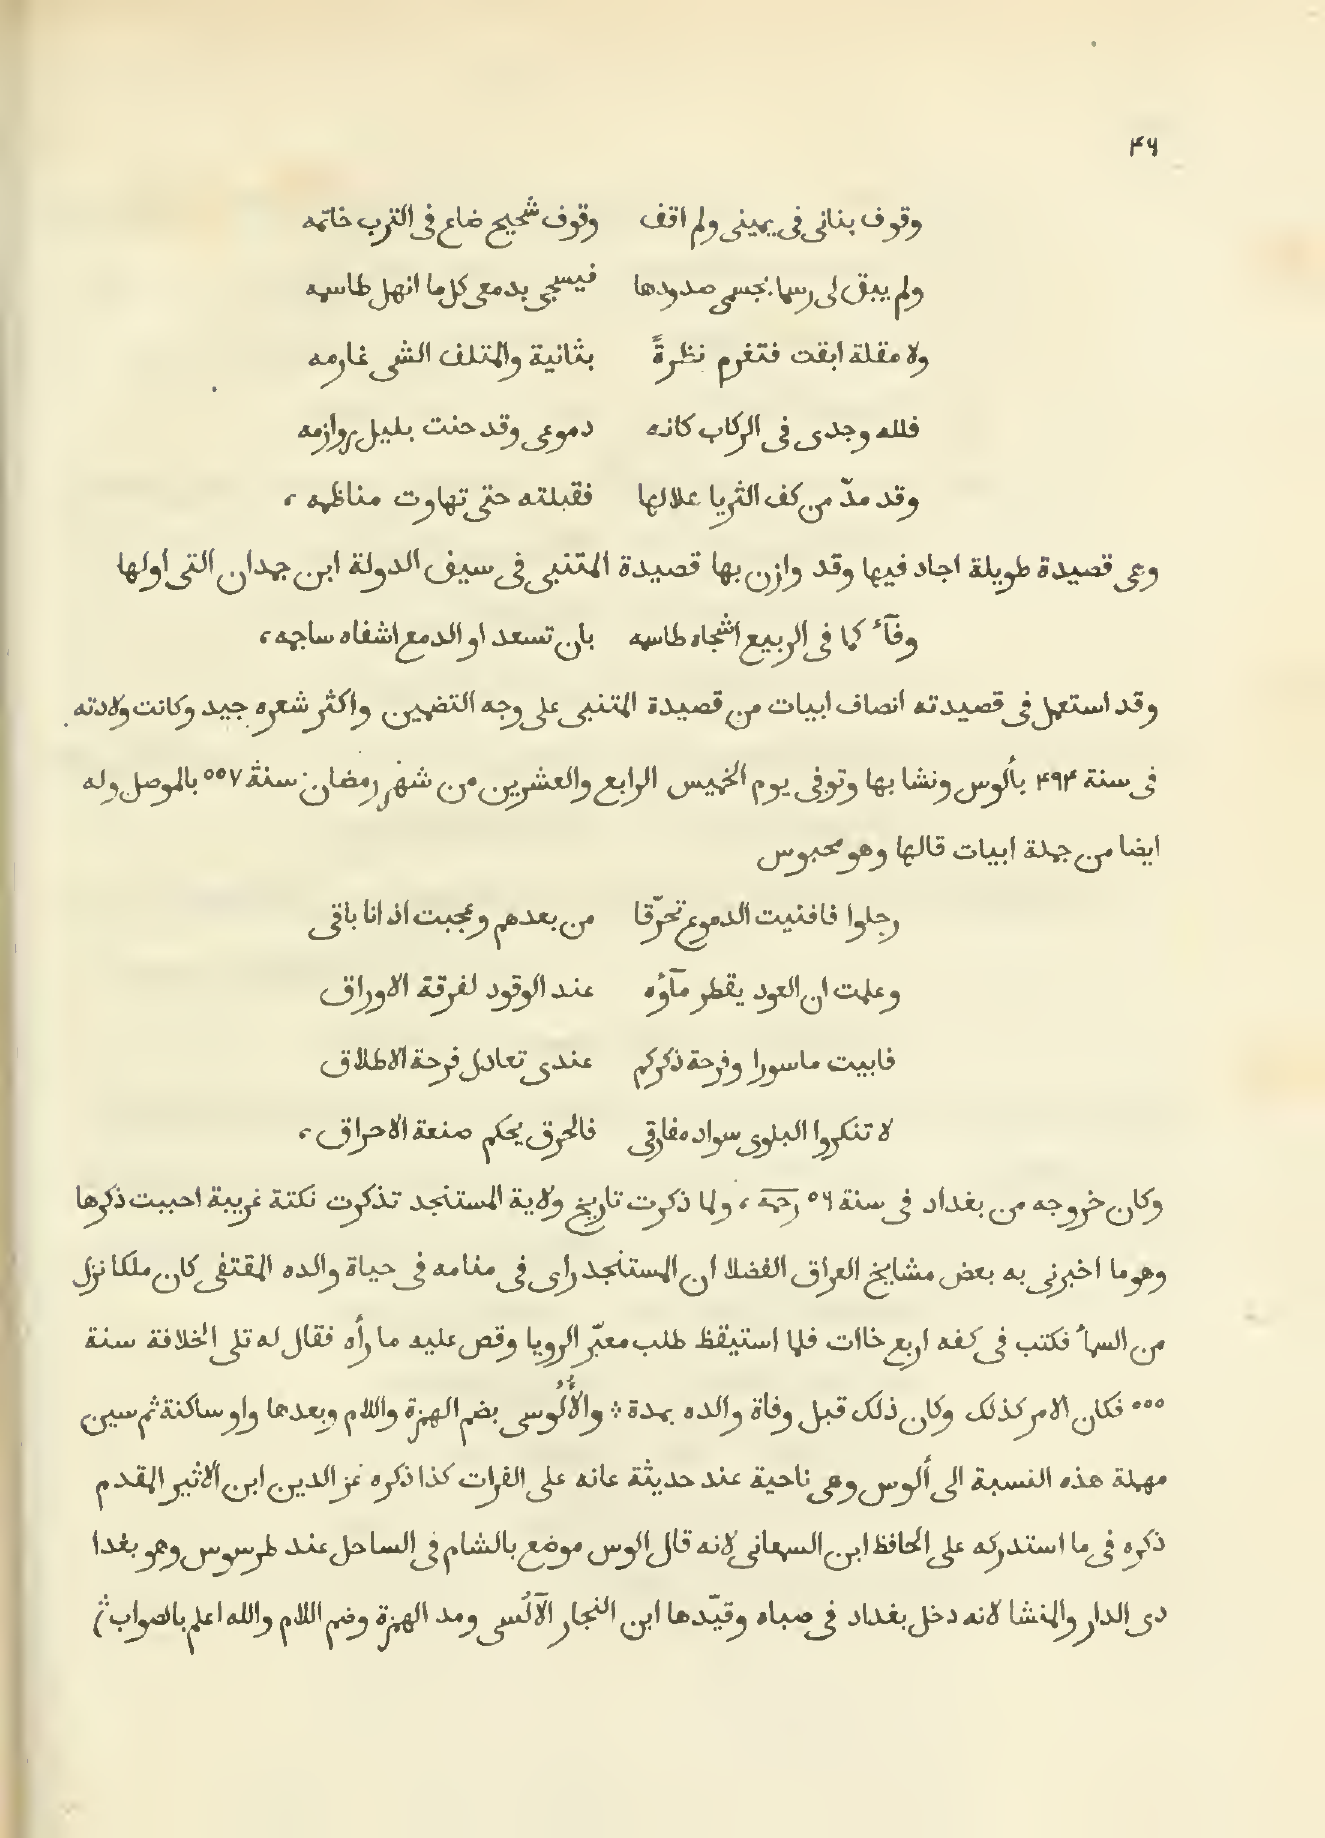 ۴۶
وقوف بنانى فى يمينى ولم اقف وقوف شحيح ضاع فى الترب خاتمه
ولم يبق لى رسما بجسمى صدودها فيسجى بدمعى كل ما انهل طاسمه
ولا مقلة ابقت فتغرم نظرةً بثانية والمتلف الشى غارمه
فلله وجدى فى الركاب كانه دموعى وقد حنت بليل روازمه
وقد مدّ من كف الثريا علالها فقبلته حتى تهاوت مناظمه ،
وهى قصيدة طويلة اجاد فيها وقد وازن بها قصيدة المتنبى فى سيف الدولة ابن حمدان التى اولها
وفآء كما فى الربيع اشجاه طاسمه بان تسعد او الدمع اشفاه ساجمه ،
وقد استعمل فى قصيدته انصاف ابيات من قصيدة المتنبى على وجه التضمين واكثر شعره جيد وكانت ولادته
فى سنة ۴۹۴ بألوس ونشا بها وتوفى يوم الخميس الرابع والعشرين من شهر رمضان سنة ٥٥٧ بالموصل وله
ايضا من جملة ابيات قالها وهو محبوس
رحلوا فافنيت الدموع تحرّقا من بعدهم وعجبت اذ انا باقى
وعلمت ان العود يقطر مآؤه عند الوقود لفرقة الاوراق
فابيت ماسورا وفرحة ذكركم عندى تعادل فرحة الاطلاق
لا تنكروا البلوى سواد مفارقى فالحرق يحكم صنعة الاحراق ،
وكان خروجه من بغداد فى سنة ٥٦ رحمه ، ولما ذكرت تاريخ ولاية المستنجد تذكرت نكتة غريبة احببت ذكرها
وهو ما اخبرنى به بعض مشايخ العراق الفضلا ان المستنجد راى فى منامه فى حياة والده المقتفى كان ملكا نزل
من السمأ فكتب فى كفه اربع خاات فلما استيقظ طلب معبّر الرويا وقص عليه ما رأه فقال له تلى الخلافة سنة
٥٥٥ فكان الامر كذلك وكان ذلك قبل وفاة والده بمدة ※ والأُلُوسى بضم الهمزة واللام وبعدها واو ساكنة ثم سين
مهملة هذه النسبة الى ألوس وهى ناحية عند حديثة عانه على الفرات كذا ذكره عز الدين ابن الاثير المقدم
ذكره فى ما استدركه على الحافظ ابن السمعانى لانه قال الوس موضع بالشام فى الساحل عند طرسوس وهو بغدا
دى الدار والمنشا لانه دخل بغداد فى صباه وقيّدها ابن النجار الآلُسى ومد الهمزة وضم اللام والله اعلم بالصواب